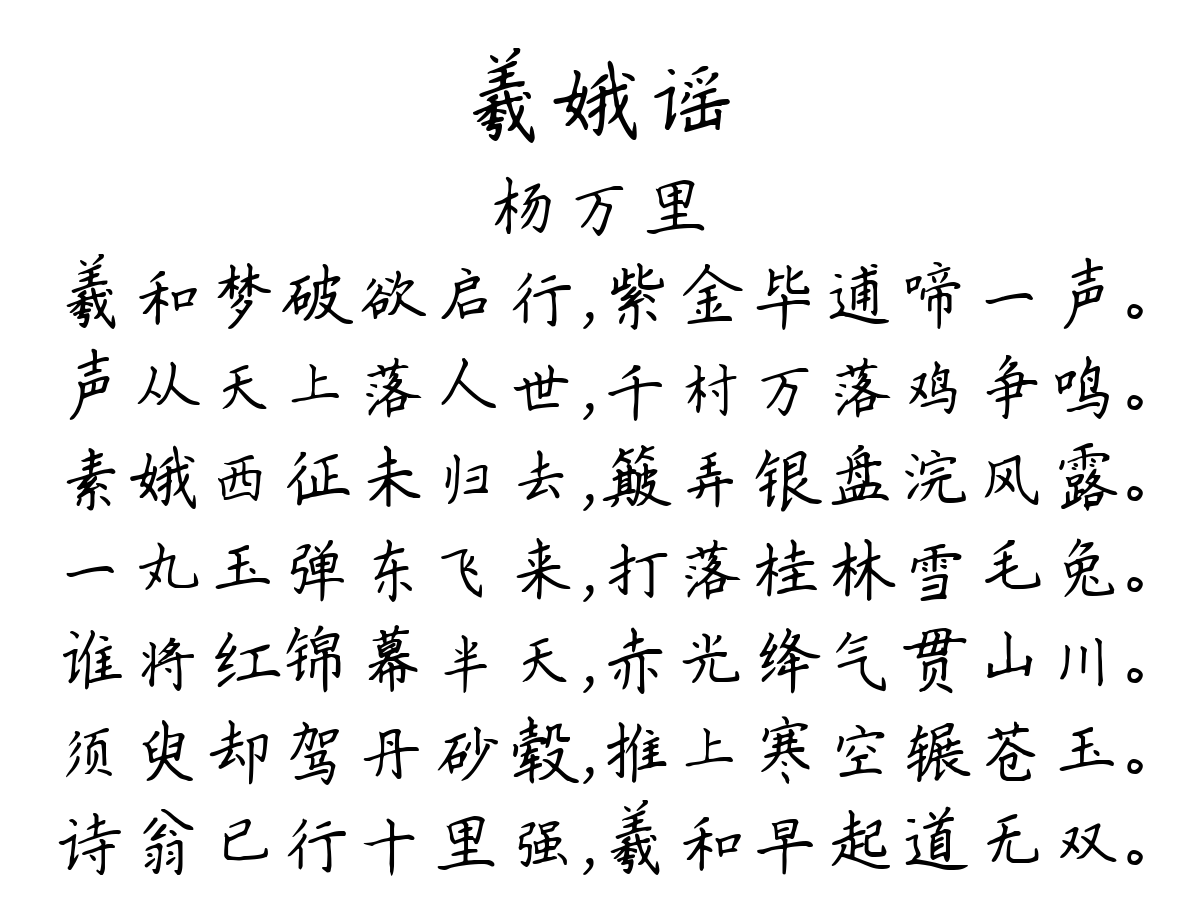 羲娥谣
杨万里
羲和梦破欲启行,紫金毕逋啼一声。
声从天上落人世,千村万落鸡争鸣。
素娥西征未归去,簸弄银盘浣风露。
一丸玉弹东飞来,打落桂林雪毛兔。
谁将红锦幕半天,赤光绛气贯山川。
须臾却驾丹砂毂,推上寒空辗苍玉。
诗翁已行十里强,羲和早起道无双。